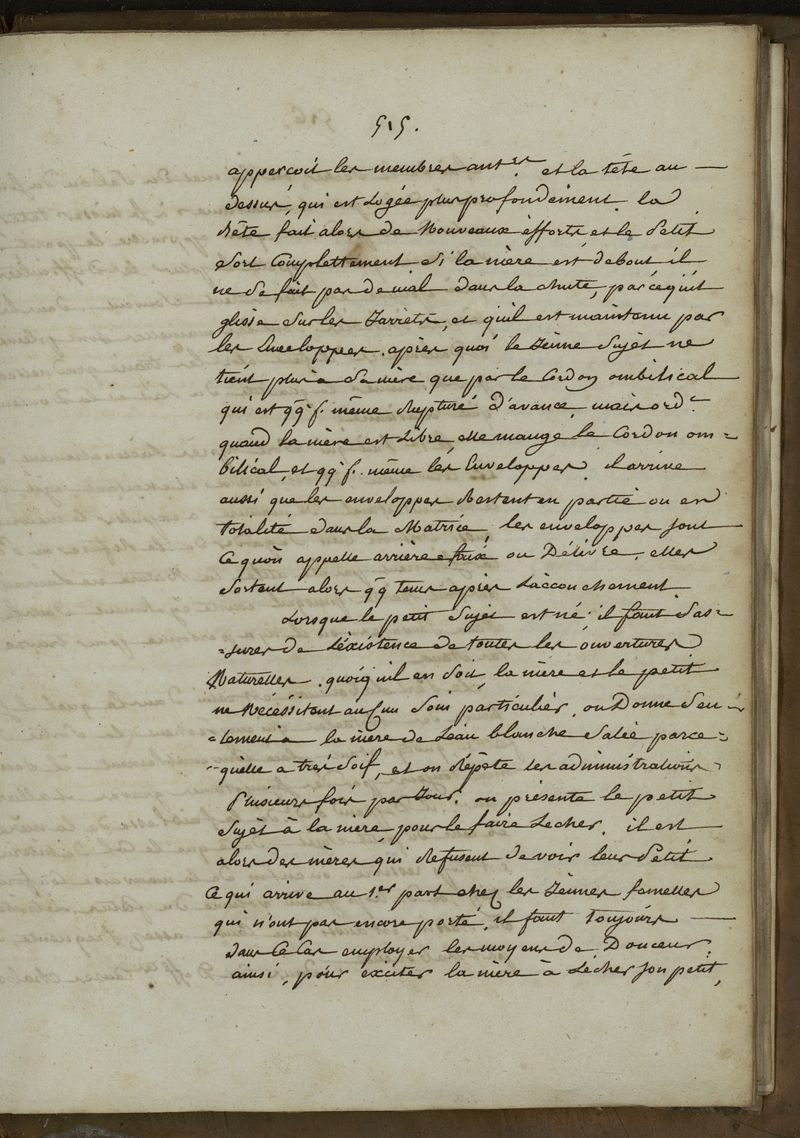 515.
apperçoit les membres ant.rs et la tête au —
dessus, qui est Logée plus profondément. la
Bête fait alors de Nouveaux éfforts et le Petit
Sort Complettement. Si la mère est debout il
ne Se fait pas de mal dans la chute, parcequ'il
glisse Sur les Jarrets, et qu'il est maintenu par
les Enveloppes. après quoi le Jeune Sujet ne
tient plus à Sa mère que par le Cordon ombilical
qui est qq. f. même Rupturé d'avance, mais ord.re
quand la mère est Libre, elle mange le Cordon om=
bilical, et qq. f. même les Enveloppes. il arrive
aussi que les enveloppes Restent en partie ou en
totalité dans la Matrice, les enveloppes sont
Ce qu'on appelle arrière faix ou Délivre, elles
Sortent alors qq tems après L'accouchement.
Lorsque le petit Sujet est né il faut S'as=
=surer de L'éxistence de toutes les ouvertures
Naturelles. quoiqu'il en Soit, la mère et le petit
ne Nécéssitent auçun Soin particulier, on Donne Seu=
=lement à la mère de L'eau blanche Salée parce=
=quelle a très Soif, et on Répète les administrations
Plusieurs fois par Jour. on présente le petit
Sujèt à la mère pour le faire Lecher. il est
alors des mères qui Refusent de voir leur Petit
Ce qui arrive au 1.er part chez les Jeunes femelles
qui n'ont pas encore porté, il faut toujours —
dans Ce Cas employer les moyens de Douceur.
ainsi, pour éxciter la mère à Lécher son petit,